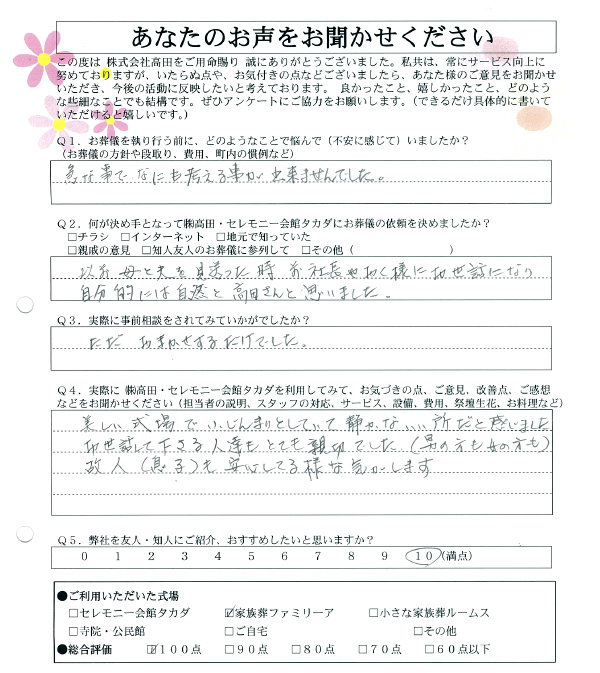 あなたのお声をお聞かせください
この度は 株式会社高田をご用命賜り 誠にありがとうございました。私共は、常にサービス向上に
努めておりますが、いたらぬ点や、お気付きの点などございましたら、あなた様のご意見をお聞かせ
いただき、今後の活動に反映したいと考えております。 良かったこと、嬉しかったこと、どのよう
な些細なことでも結構です。ぜひアンケートにご協力をお願いします。(できるだけ具体的に書いて
いただけると嬉しいです。)
Q1．お葬儀を執り行う前に、どのようなことで悩んで（不安に感じて）いましたか？
（お葬儀の方針や段取り、費用、町内の慣例など）
急な事で なにも考える事が出来ませんでした。
Q2．何が決め手となって㈱高田・セレモニー会館タカダにお葬儀の依頼を決めましたか？
□チラシ □インターネット □地元で知っていた
□親戚の意見 □知人友人のお葬儀に参列して □その他（ ）
以前 母と夫を見送った時 前社長や 様にお世話になり
自分的には自然と高田さんと思いました。
Q3．実際に事前相談をされてみていかがでしたか？
ただ おまかせするだけでした。
Q4．実際に ㈱高田・セレモニー会館タカダを利用してみて、お気づきの点、ご意見、改善点、ご感想
などをお聞かせください（担当者の説明、スタッフの対応、サービス、設備、費用、祭壇生花、お料理など）
美しい式場で こじんまりとしていて 静かないい所だと感じました
お世話して下さる人達もとても親切でした（男の方も女の方も）
故人（息子）も安心してる様な気がします
Q5．弊社を友人・知人にご紹介、おすすめしたいと思いますか？
0 1 2 3 4 5 6 7 8 9 10（満点）
●ご利用いただいた式場
□セレモニー会館タカダ ☑家族葬ファミリーア □小さな家族葬ルームス
□寺院・公民館 □ご自宅 □その他
●総合評価 ☑100点 □90点 □80点 □70点 □60点以下